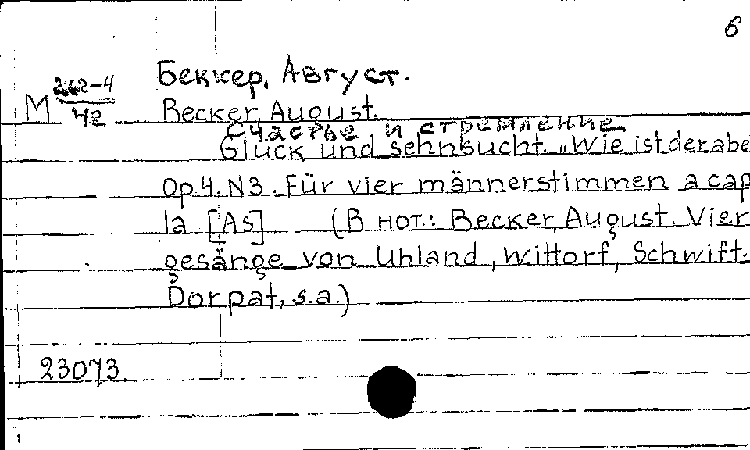 6
Беккер, Август.
М 262-4/42
Becker, August.
Счастье и стремление
Glück und sehnsucht. „Wie ist der abe
Op.4. N3. Für vier männerstimmen a cap
la [As] (В нот.: Becker, August. Vier
gesänge von Uhland, Wittorf, Schwift.
Dorpat, s.a.)
23073.
1